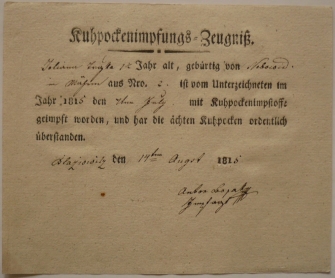 Kuhpockenimpfungs-Zeugniß.
Johann Jahr alt, gebürtig von
in aus Nro. ist vom Unterzeichneten im
Jahr 1816 den July mit Kuhpockenimpfstoffe
geimpft worden, und hat die ächten Kuhpocken ordentlich
überstanden.
den 14ten August 1816
Anton